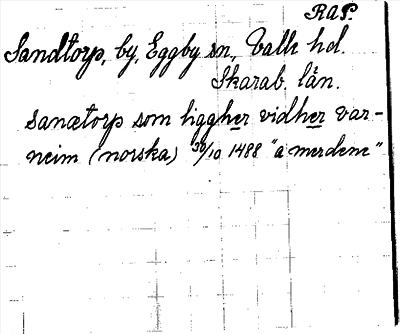 RAP.
Sandtorp, by, Eggby sn, Valle hd.
Skarab. län.
sanætorp som liggher vidher var-
neim (norska) 30/10 1488 "a merdene"